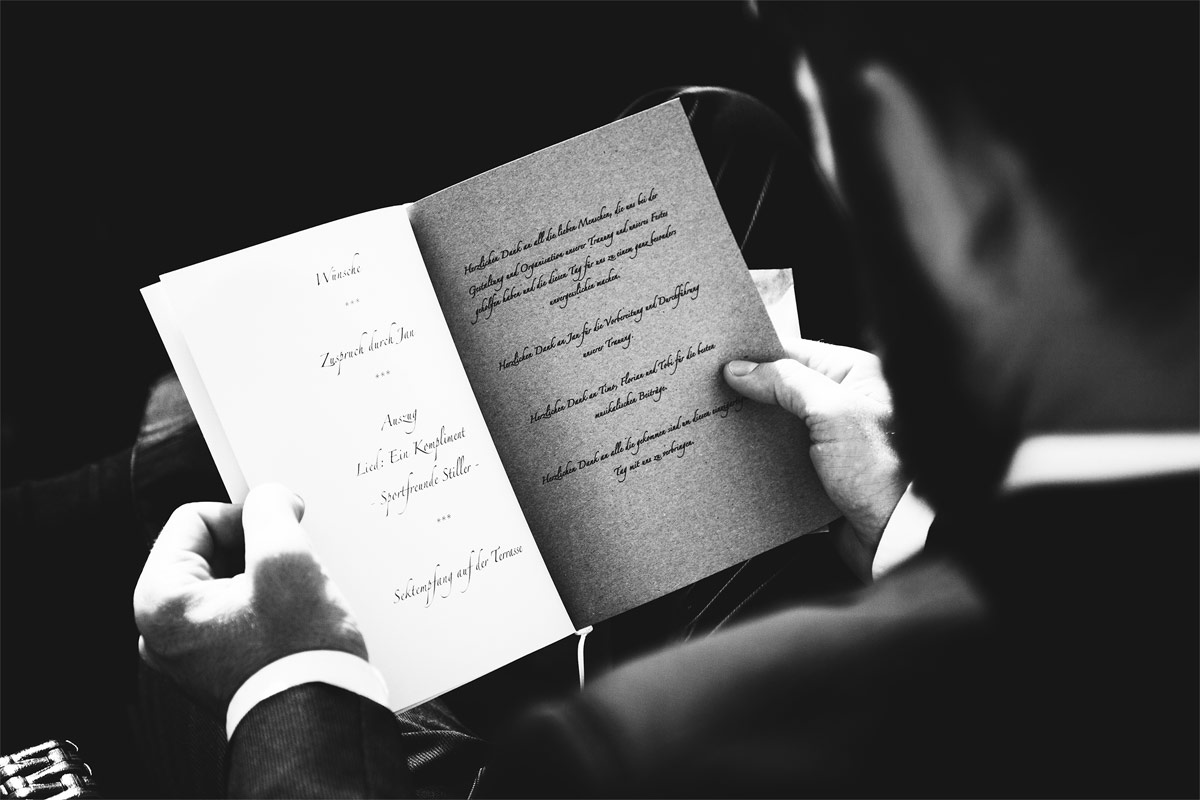 Wünsche
***
Zuspruch durch Jan
***
Auszug
Lied: Ein Kompliment
- Sportfreunde Stiller -
***
Sektempfang auf der Terrasse
Herzlichen Dank an all die lieben Menschen, die uns bei der
Gestaltung und Organisation unserer Trauung und unseres Festes
geholfen haben und die diesen Tag für uns zu einem ganz besonders
unvergesslichen machen.
Herzlichen Dank an Jan für die Vorbereitung und Durchführung
unserer Trauung.
Herzlichen Dank an Timo, Florian und Tobi für die besten
musikalischen Beiträge.
Herzlichen Dank an alle die gekommen sind um diesen
Tag mit uns zu verbringen.